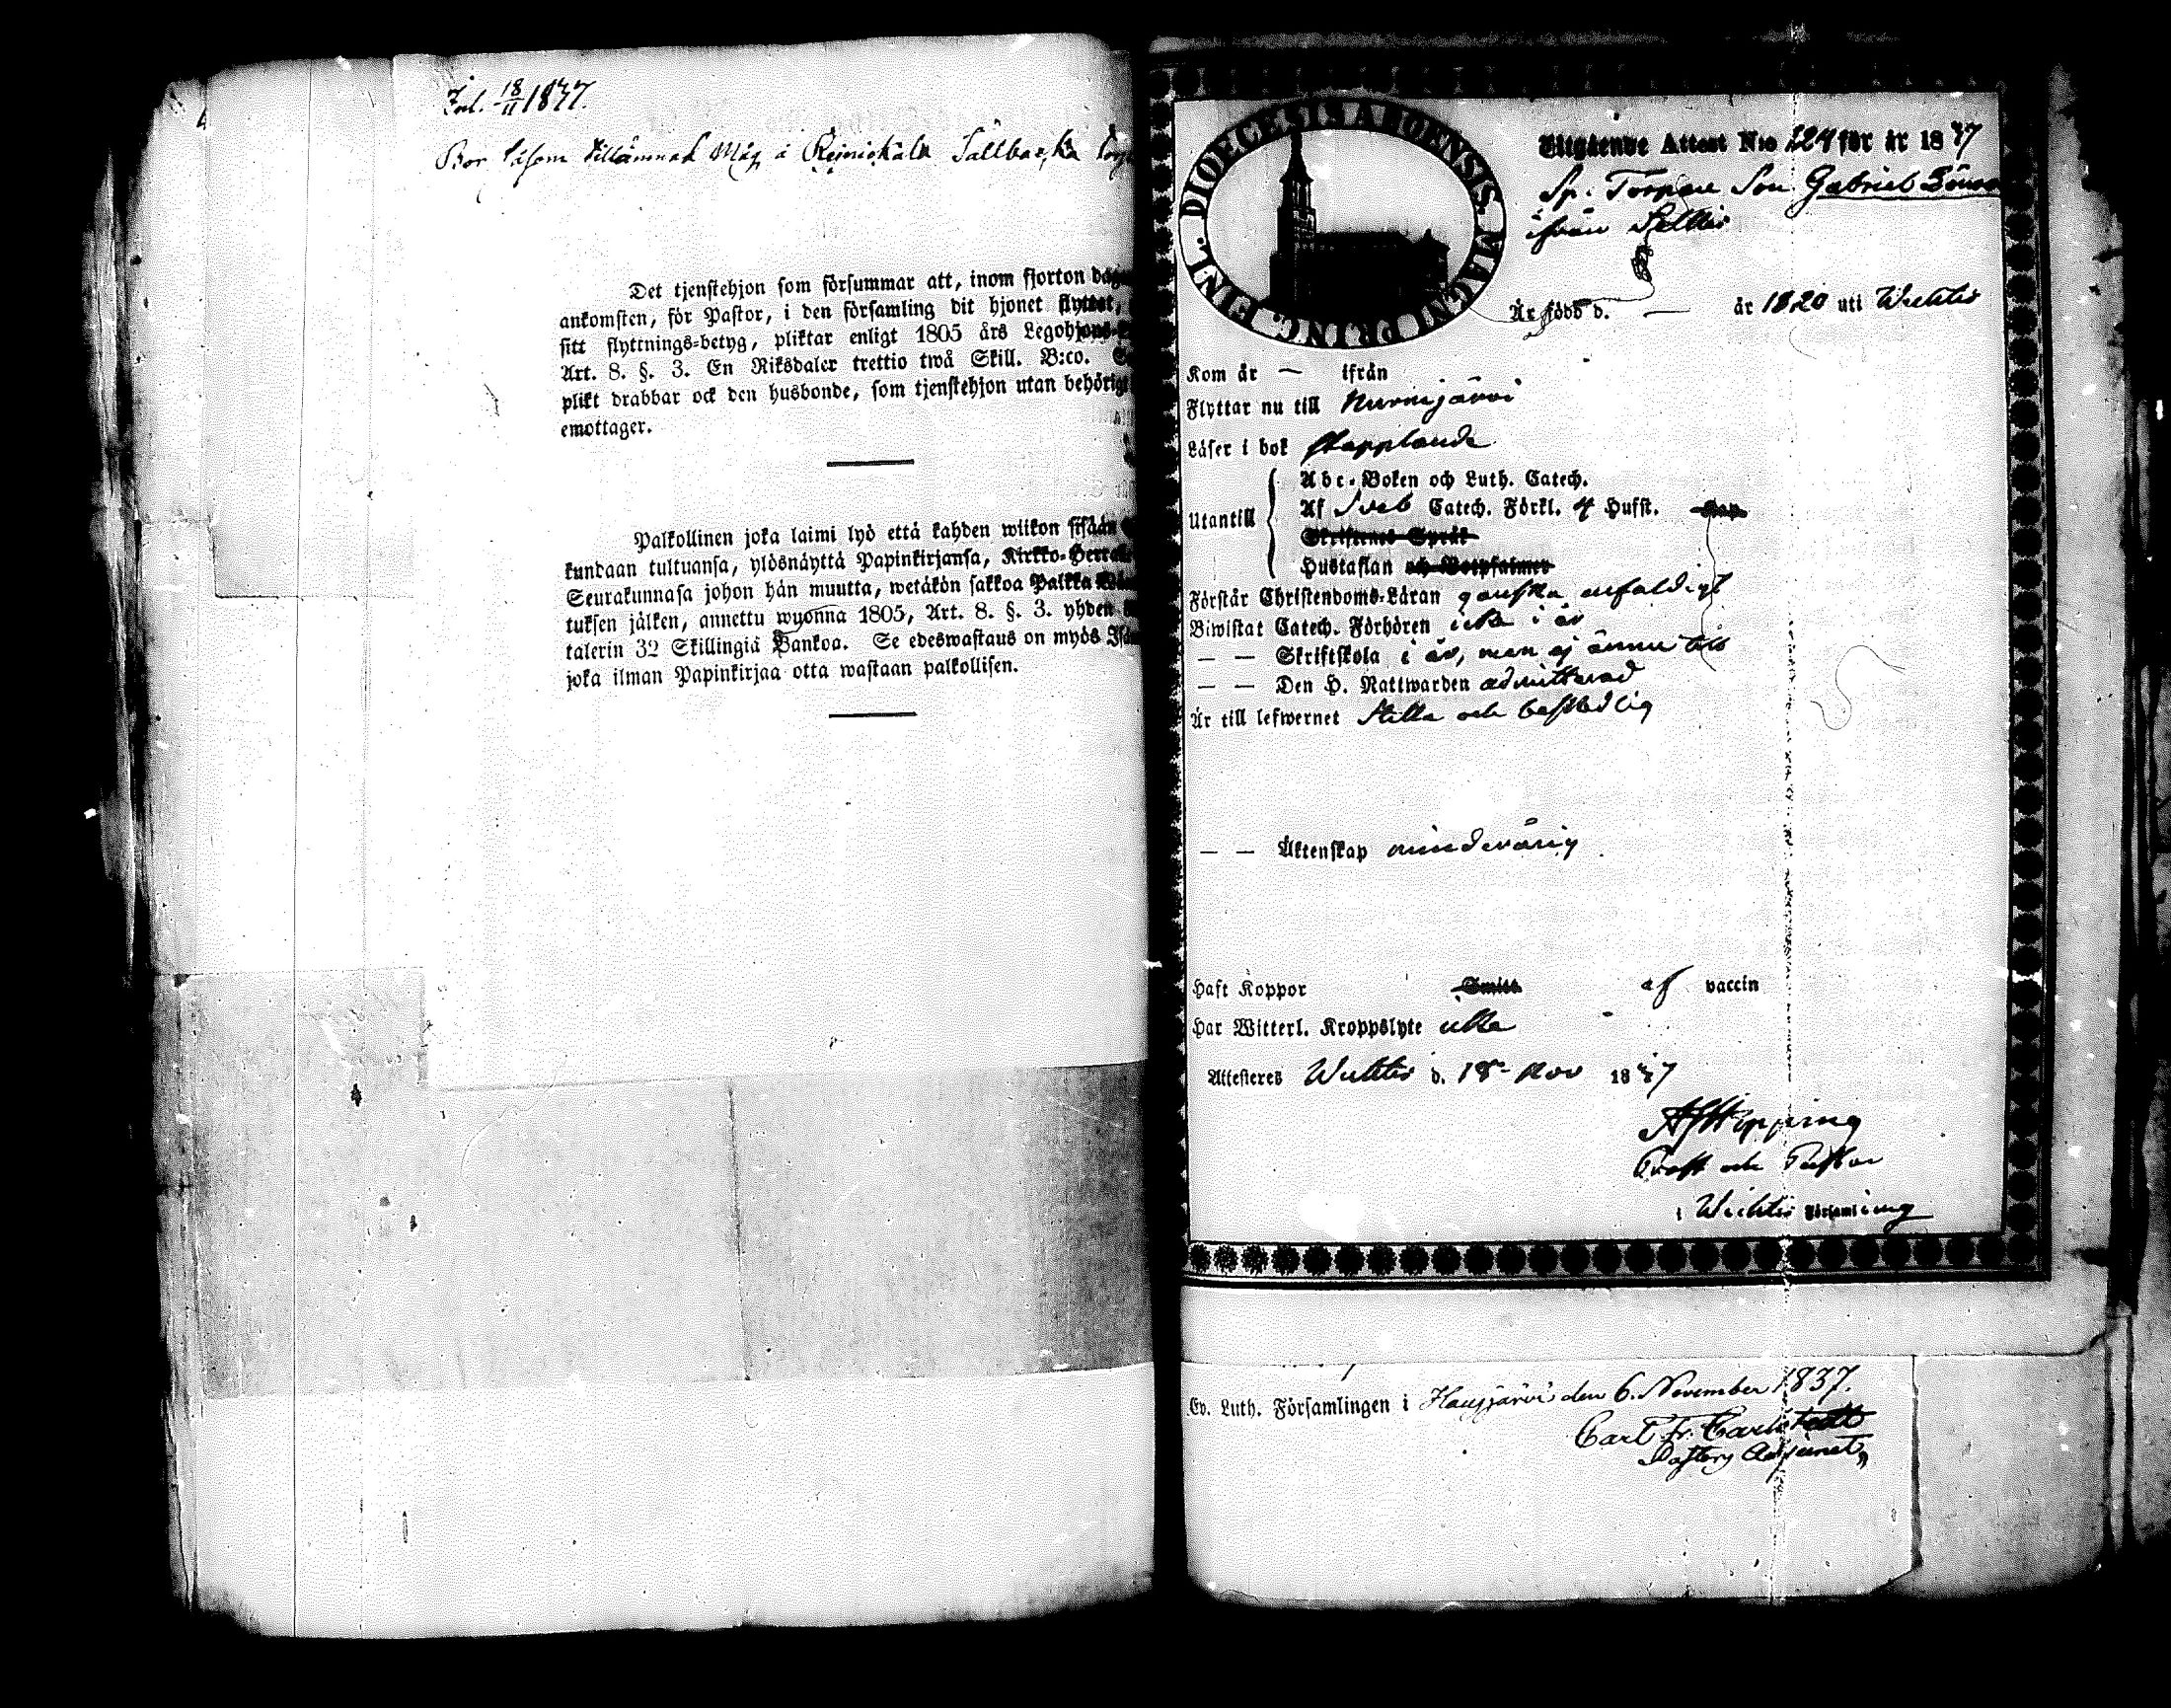 Inl. 18/11 1837.
Bor såsom tillämnad Måg å Reiniskala Sällbacka
Det tjenstehjon som försummar att, inom fjorton
ankomsten, för Pastor, i den församling dit hjonet flyttat,
sitt flyttnings-betyg, pliktar enligt 1805 års
Art. 8. §. 3. En Riksdaler trettio twå Skill. B:co.
plikt drabbar ock den husbonde, som tjenstehjon utan
emottager.
Palkollinen joka laimi lyö että kahden wiikon sisään
kundaan tultuansa, ylösnäyttä Papinkirjansa,
Seurakunnasa johon hän muutta, wetäkön sakkoa Palkka
tuksen jälken, annettu wuonna 1805, Art. 8. §. 3. yhden
talerin 32 Skillingiä Bankoa. Se edeswastaus on myös
joka ilman Papinkirjaa otta wastaan palkollisen.
DIOECESIS ABOENSIS. MAGNI PRINC. FINL.
Utgående Attest N:o 124 för år 1837
Sp. Torpare Son Gabriel
ifrån
Är född d. — år 1820 uti Wichtis
Kom år — ifrån
Flyttar nu till Nurmijärvi
Läser i bok stapplande
Utantill
Abc-Boken och Luth. Catech.
Af Sveb Catech. Förkl. 4 Hufst.
Skriftenes Språk
Hustaflan och Botpsalmer
Förstår Christendoms-Läran ganska enfaldigt
Biwistat Catech. Förhören icke i år
— — Skriftskola i år, men ej ännu till
— — Den H. Nattwarden admitterad
Är till lefwernet stilla och beskedlig
— — Äktenskap minderårig
Haft Koppor Smitt af vaccin
Har Witterl. Kroppslyte icke
Attesteres Wichtis d. 18 Nov 1837
AJ Hipping
Prost och Pastor
i Wichtis Församling
Ev. Luth. Församlingen i Hausjärvi den 6. November 1837.
Carl Fr. Carlstedt
Pastors Adjunct